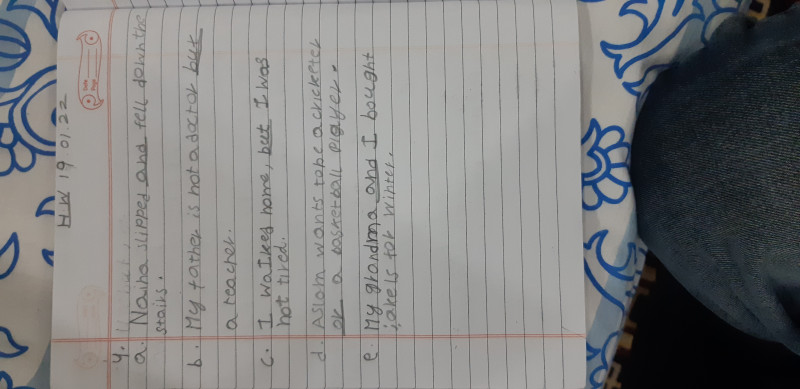 HW 19 01.22
4.
a. Naiha slipped and fell down the
stairs.
b. My father is not a doctor but
a teacher.
c. I walked home, but I was
not tired.
d. Aslam wants to be a cricketer
or a basketball player.
e. My grandma and I bought
jakels for winter.